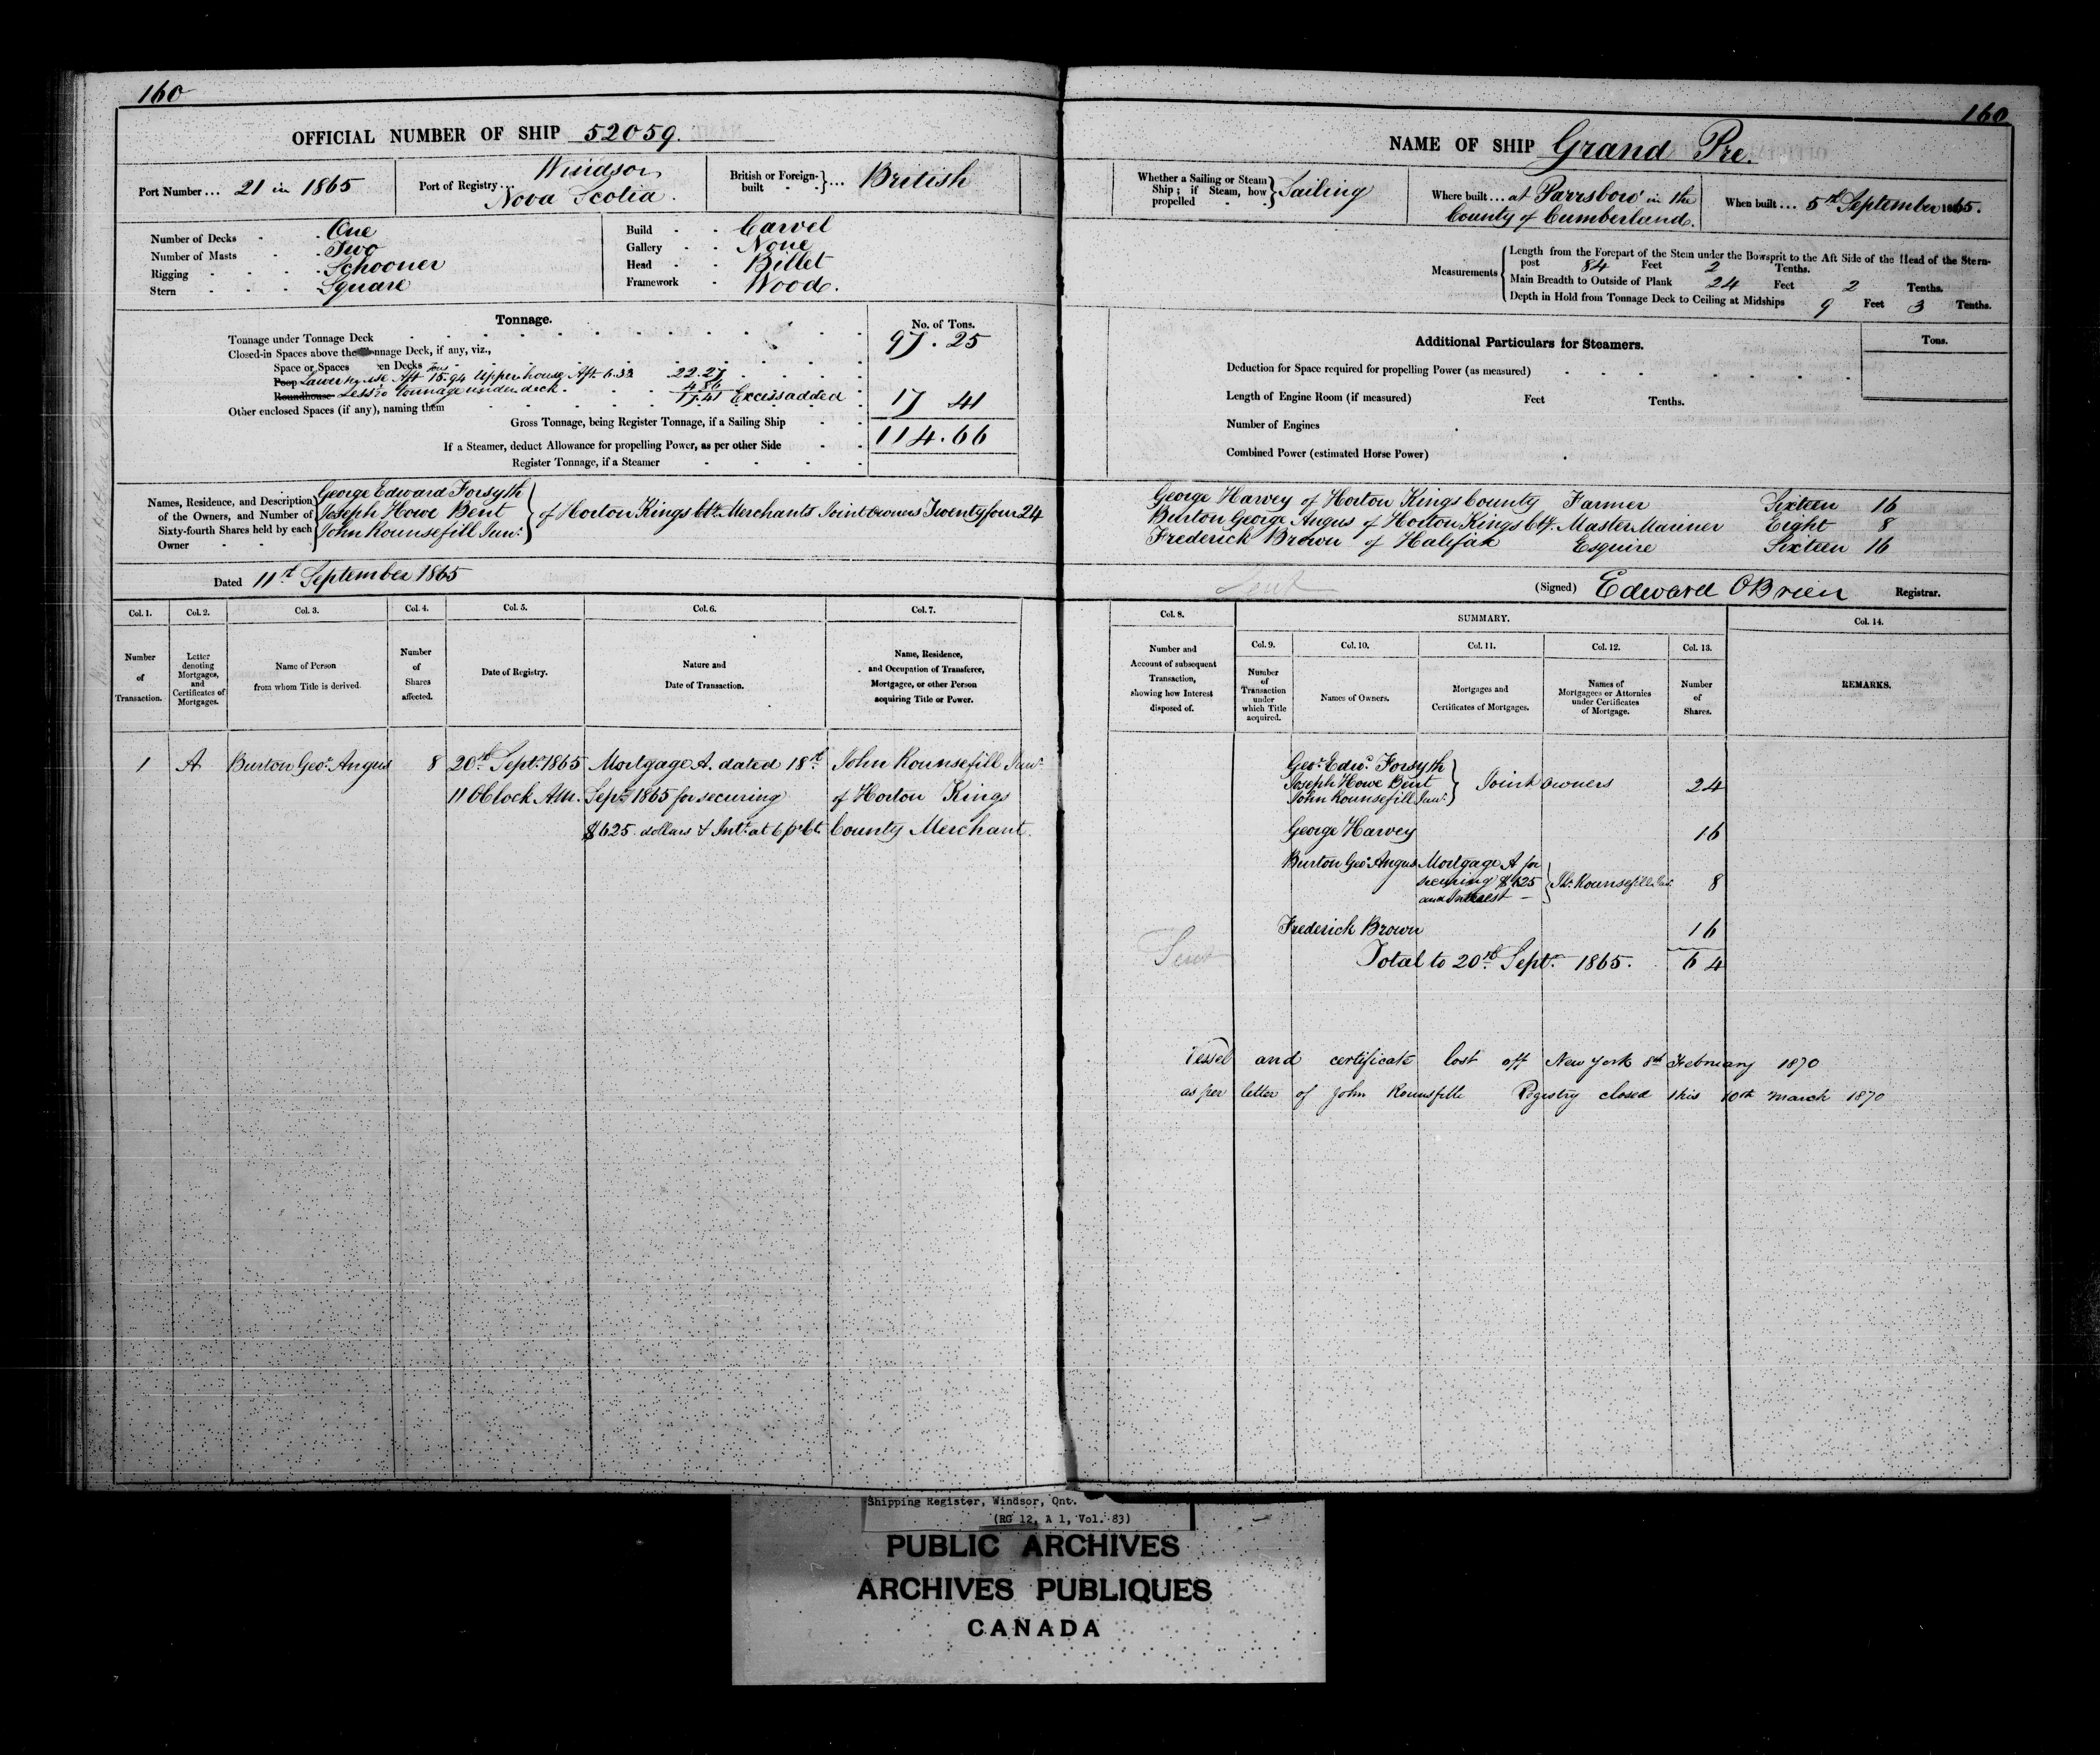 160
OFFICIAL NUMBER OF SHIP 52059.
Port Number ... 21 in 1865
Port of Registry ... Windsor, Nova Scotia.
British or Foreign-built } ... British
Number of Decks One
Number of Masts Two
Rigging Schooner
Stern Square
Build Carvel
Gallery None
Head Billet
Framework Wood.
Tonnage.
No. of Tons.
Tonnage under Tonnage Deck 97.25
Closed-in Spaces above the nnage Deck, if any, viz.,
Space or Spaces en Decks
Poop Lower house Aft 15.94 Upper house Aft 6.33 22.27
Roundhouse Less tonnage under deck. 4.86
17.41 Excess added 17 41
Other enclosed Spaces (if any), naming them
Gross Tonnage, being Register Tonnage, if a Sailing Ship 114.66
If a Steamer, deduct Allowance for propelling Power, as per other Side
Register Tonnage, if a Steamer
Names, Residence, and Description of the Owners, and Number of Sixty-fourth Shares held by each Owner
George Edward Forsyth
Joseph Howe Bent
John Rounsefill Junr.
} of Horton Kings Cty. Merchants Joint owners Twenty four 24
Dated 11th September 1865
Col. 1. Col. 2. Col. 3. Col. 4. Col. 5. Col. 6. Col. 7.
Number of Transaction.
Letter denoting Mortgages, and Certificates of Mortgages.
Name of Person from whom Title is derived.
Number of Shares affected.
Date of Registry.
Nature and Date of Transaction.
Name, Residence, and Occupation of Transferee, Mortgagee, or other Person acquiring Title or Power.
1 A Burton Geo. Angus 8 20th Sept. 1865 Mortgage A. dated 18th John Rounsefill Junr.
11 OClock AM. Sept. 1865 for securing of Horton Kings
$625 dollars & Int. at 6 pr Ct. County Merchant.
160
NAME OF SHIP Grand Pre.
Whether a Sailing or Steam Ship; if Steam, how propelled } Sailing
Where built ... at Parrsboro' in the County of Cumberland.
When built ... 5th September 1865.
Measurements
Length from the Forepart of the Stem under the Bowsprit to the Aft Side of the Head of the Stern-
post 84 Feet 2 Tenths.
Main Breadth to Outside of Plank 24 Feet 2 Tenths.
Depth in Hold from Tonnage Deck to Ceiling at Midships 9 Feet 3 Tenths.
Additional Particulars for Steamers.
Tons.
Deduction for Space required for propelling Power (as measured)
Length of Engine Room (if measured) Feet Tenths.
Number of Engines
Combined Power (estimated Horse Power)
George Harvey of Horton Kings County Farmer Sixteen 16
Burton George Angus of Horton Kings Cty. Master Mariner Eight 8
Frederick Brown of Halifax Esquire Sixteen 16
Sent
(Signed) Edward OBrien Registrar.
Col. 8. SUMMARY. Col. 14.
Col. 9. Col. 10. Col. 11. Col. 12. Col. 13.
Number and Account of subsequent Transaction, showing how Interest disposed of.
Number of Transaction under which Title acquired.
Names of Owners.
Mortgages and Certificates of Mortgages.
Names of Mortgagees or Attornies under Certificates of Mortgage.
Number of Shares.
REMARKS.
Geo. Edwd. Forsyth
Joseph Howe Bent
John Rounsefill Junr.
} Joint owners 24
George Harvey 16
Burton Geo. Angus Mortgage A for
securing $625 } Jno. Rounsefill Jur. 8
and Interest
Frederick Brown 16
Sent
Total to 20th Sept. 1865. 64
Vessel and certificate lost off New York 8th February 1870
as per letter of John Rounsfill Registry closed this 10th March 1870
Shipping Register, Windsor, Ont.
(RG 12, A 1, Vol. 83)
PUBLIC ARCHIVES
ARCHIVES PUBLIQUES
CANADA